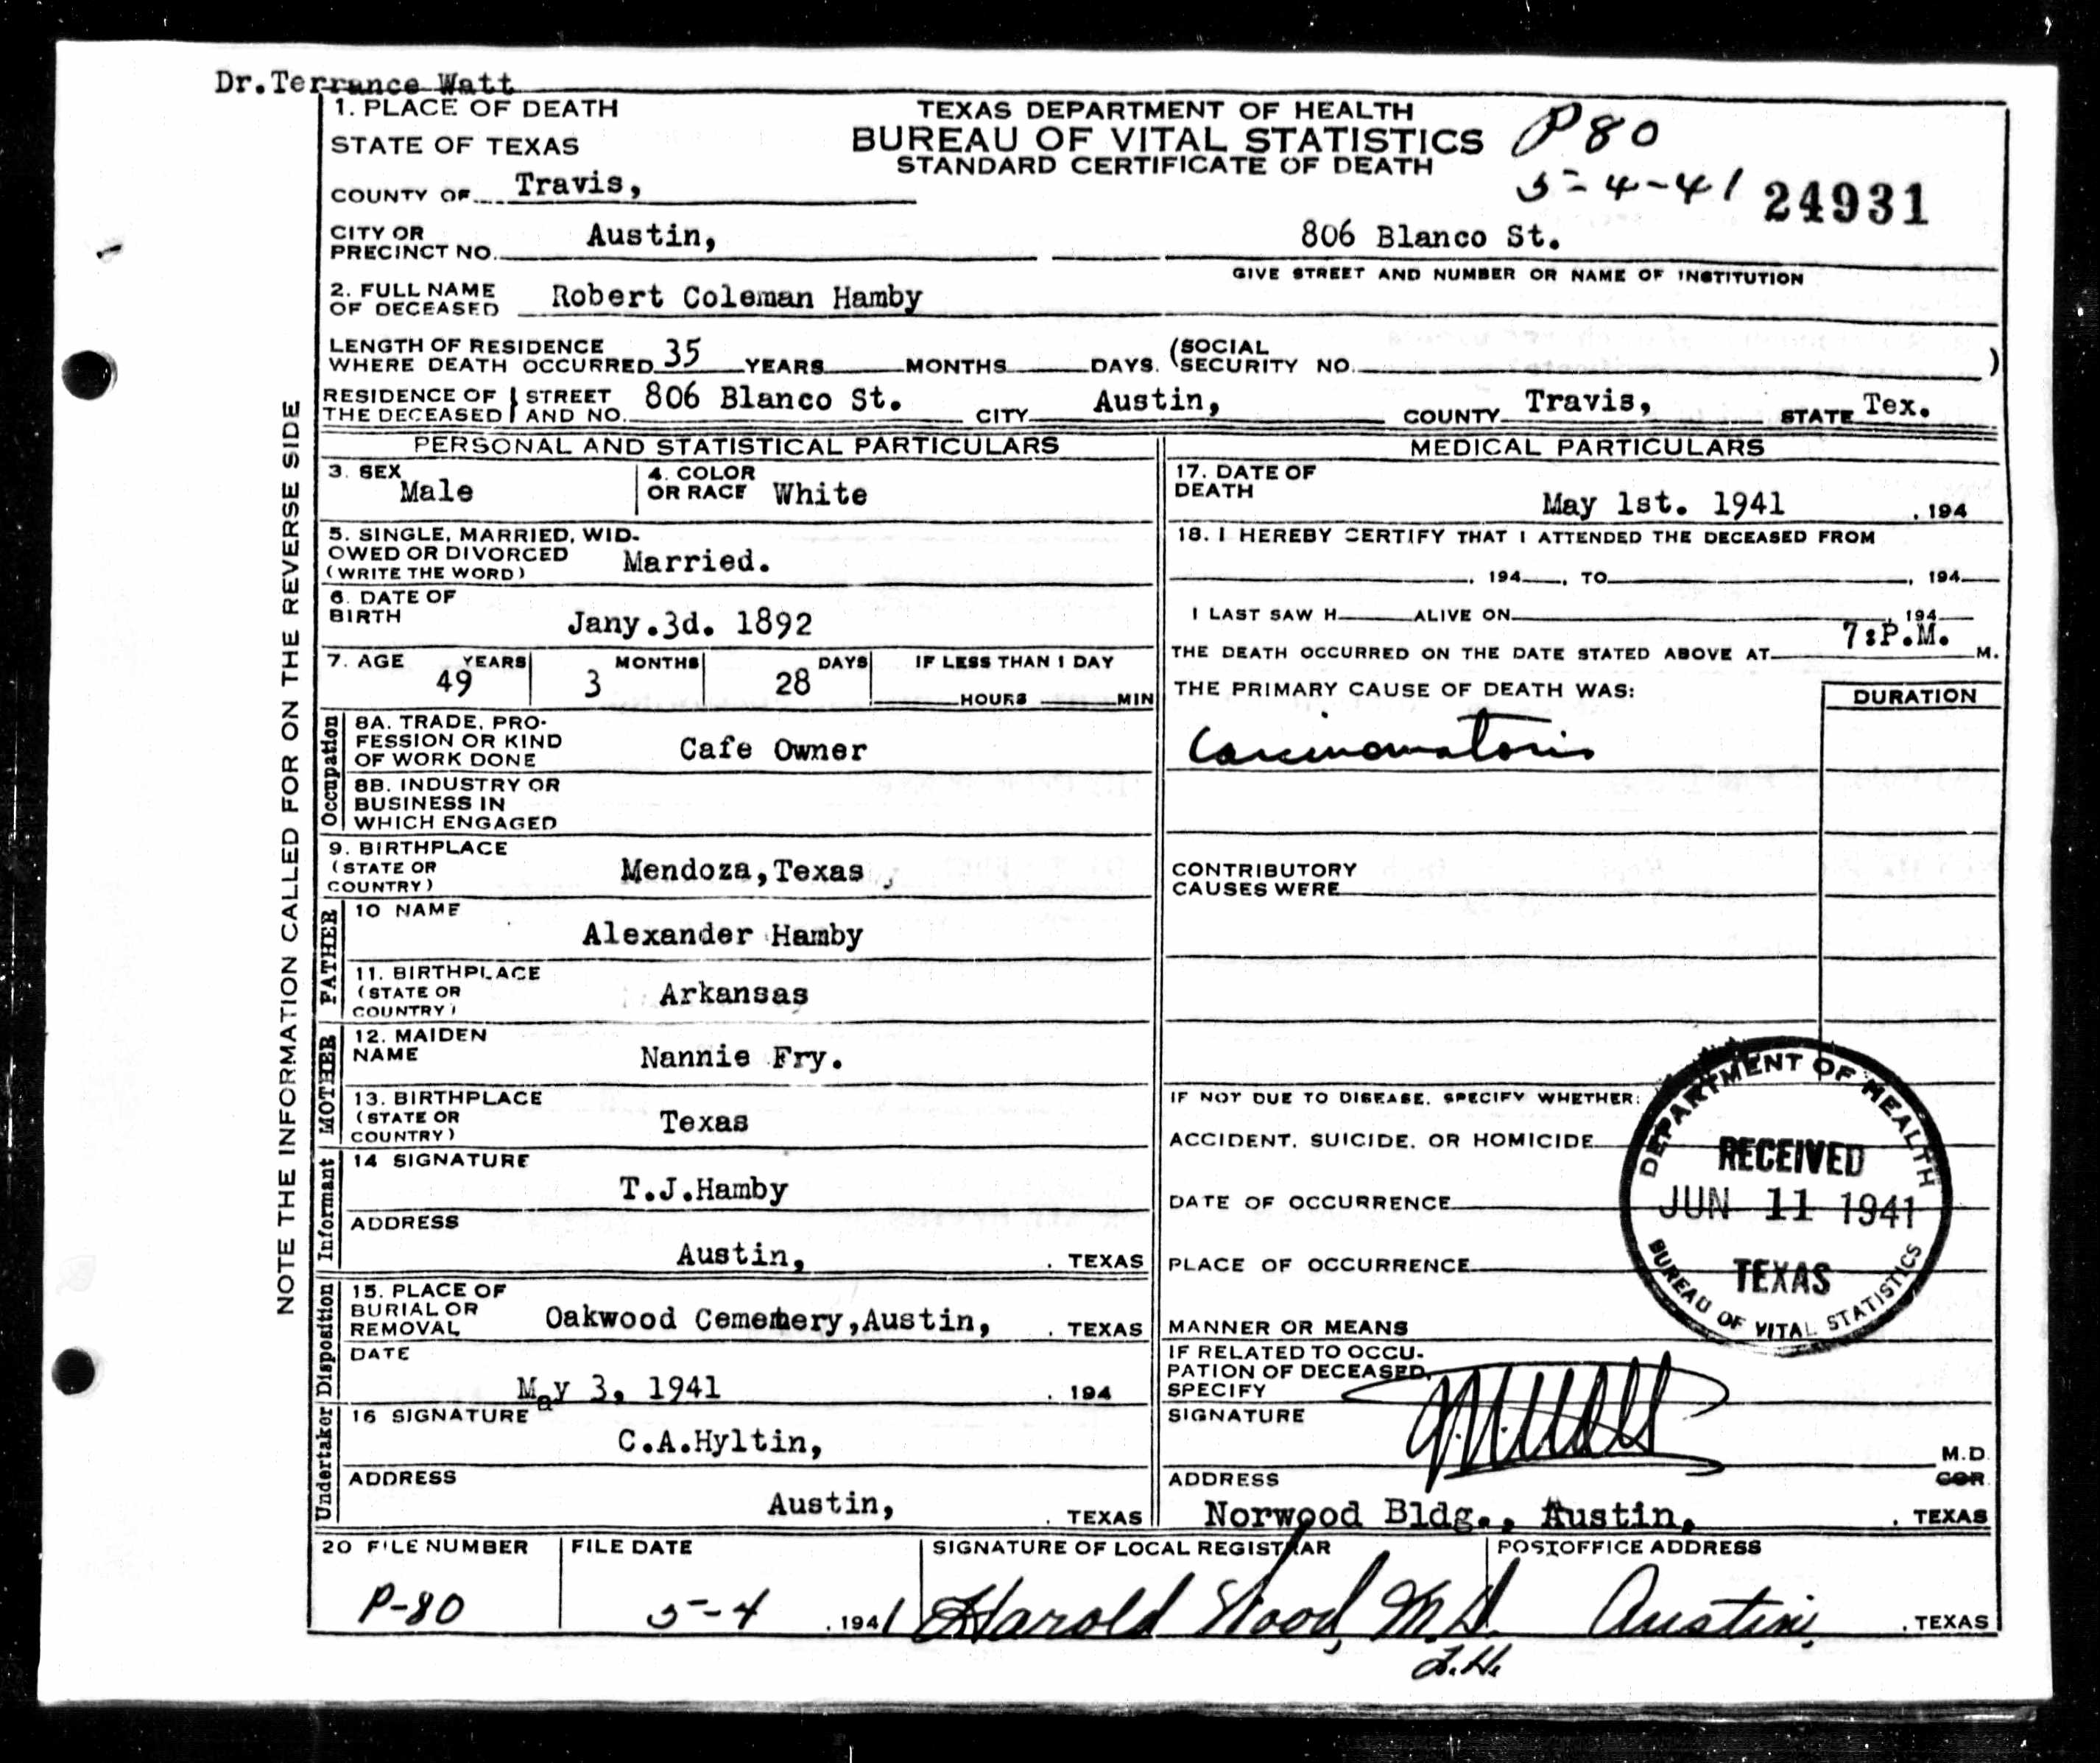 Dr.Terrance Watt
1. PLACE OF DEATH
STATE OF TEXAS
COUNTY OF Travis,
TEXAS DEPARTMENT OF HEALTH
BUREAU OF VITAL STATISTICS
STANDARD CERTIFICATE OF DEATH
P80
5-4-41 24931
CITY OR
PRECINCT NO. Austin,
806 Blanco St.
GIVE STREET AND NUMBER OR NAME OF INSTITUTION
2. FULL NAME
OF DECEASED Robert Coleman Hamby
LENGTH OF RESIDENCE
WHERE DEATH OCCURRED 35 YEARS MONTHS DAYS. (SOCIAL
SECURITY NO. )
RESIDENCE OF THE DECEASED STREET AND NO. 806 Blanco St. CITY Austin, COUNTY Travis, STATE Tex.
NOTE THE INFORMATION CALLED FOR ON THE REVERSE SIDE
PERSONAL AND STATISTICAL PARTICULARS
3. SEX Male
4. COLOR
OR RACE White
5. SINGLE, MARRIED, WID-
OWED OR DIVORCED
(WRITE THE WORD) Married.
6. DATE OF
BIRTH Jany.3d. 1892
7. AGE YEARS 49 MONTHS 3 DAYS 28 IF LESS THAN 1 DAY
HOURS MIN
Occupation
8A. TRADE, PRO-
FESSION OR KIND
OF WORK DONE Cafe Owner
8B. INDUSTRY OR
BUSINESS IN
WHICH ENGAGED
9. BIRTHPLACE
(STATE OR
COUNTRY) Mendoza,Texas ,
FATHER
10 NAME
Alexander Hamby
11. BIRTHPLACE
(STATE OR
COUNTRY) Arkansas
MOTHER
12. MAIDEN
NAME Nannie Fry.
13. BIRTHPLACE
(STATE OR
COUNTRY) Texas
Informant
14 SIGNATURE
T.J.Hamby
ADDRESS
Austin, . TEXAS
Disposition
15. PLACE OF
BURIAL OR
REMOVAL Oakwood Cemetery,Austin, . TEXAS
DATE
May 3, 1941 . 194
Undertaker
16 SIGNATURE
C.A.Hyltin,
ADDRESS
Austin, . TEXAS
MEDICAL PARTICULARS
17. DATE OF
DEATH May 1st. 1941 . 194
18. I HEREBY CERTIFY THAT I ATTENDED THE DECEASED FROM
, 194 , TO , 194
I LAST SAW H ALIVE ON , 194
THE DEATH OCCURRED ON THE DATE STATED ABOVE AT 7:P.M. M.
THE PRIMARY CAUSE OF DEATH WAS: DURATION
Carcinomatosis
CONTRIBUTORY
CAUSES WERE
IF NOT DUE TO DISEASE, SPECIFY WHETHER:
ACCIDENT, SUICIDE, OR HOMICIDE
DATE OF OCCURRENCE
PLACE OF OCCURRENCE
MANNER OR MEANS
DEPARTMENT OF HEALTH
RECEIVED
JUN 11 1941
TEXAS
BUREAU OF VITAL STATISTICS
IF RELATED TO OCCU-
PATION OF DECEASED,
SPECIFY
SIGNATURE
M.D.
COR
ADDRESS
Norwood Bldg., Austin, . TEXAS
20 FILE NUMBER FILE DATE SIGNATURE OF LOCAL REGISTRAR POSTOFFICE ADDRESS
P-80 5-4 , 1941 Harold Wood, M.D. Austin, . TEXAS